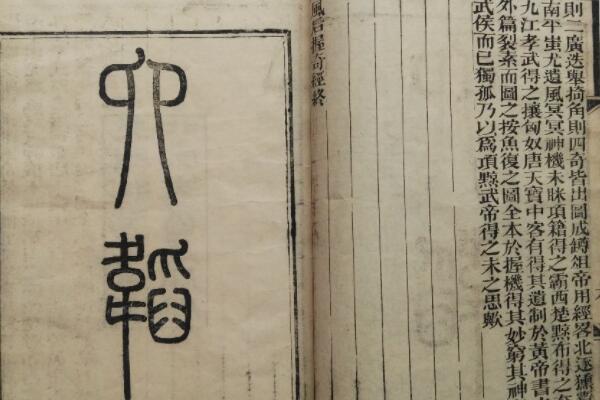 則二廣迭舉掎角則四奇皆出圖成鐏俎帝用經畧北逐獯
南平蚩尤遺風冥冥神機未眛項籍得之霸西楚黥布得之
九江孝武得之攘匈奴唐天寶中客有得其遺制於黃帝書
外篇裂素而圖之按魚復之圖全本於握機得其妙窮其神
武侯而已獨孤乃以爲項黥武帝得之未之思歟
風后握奇經終
六韜